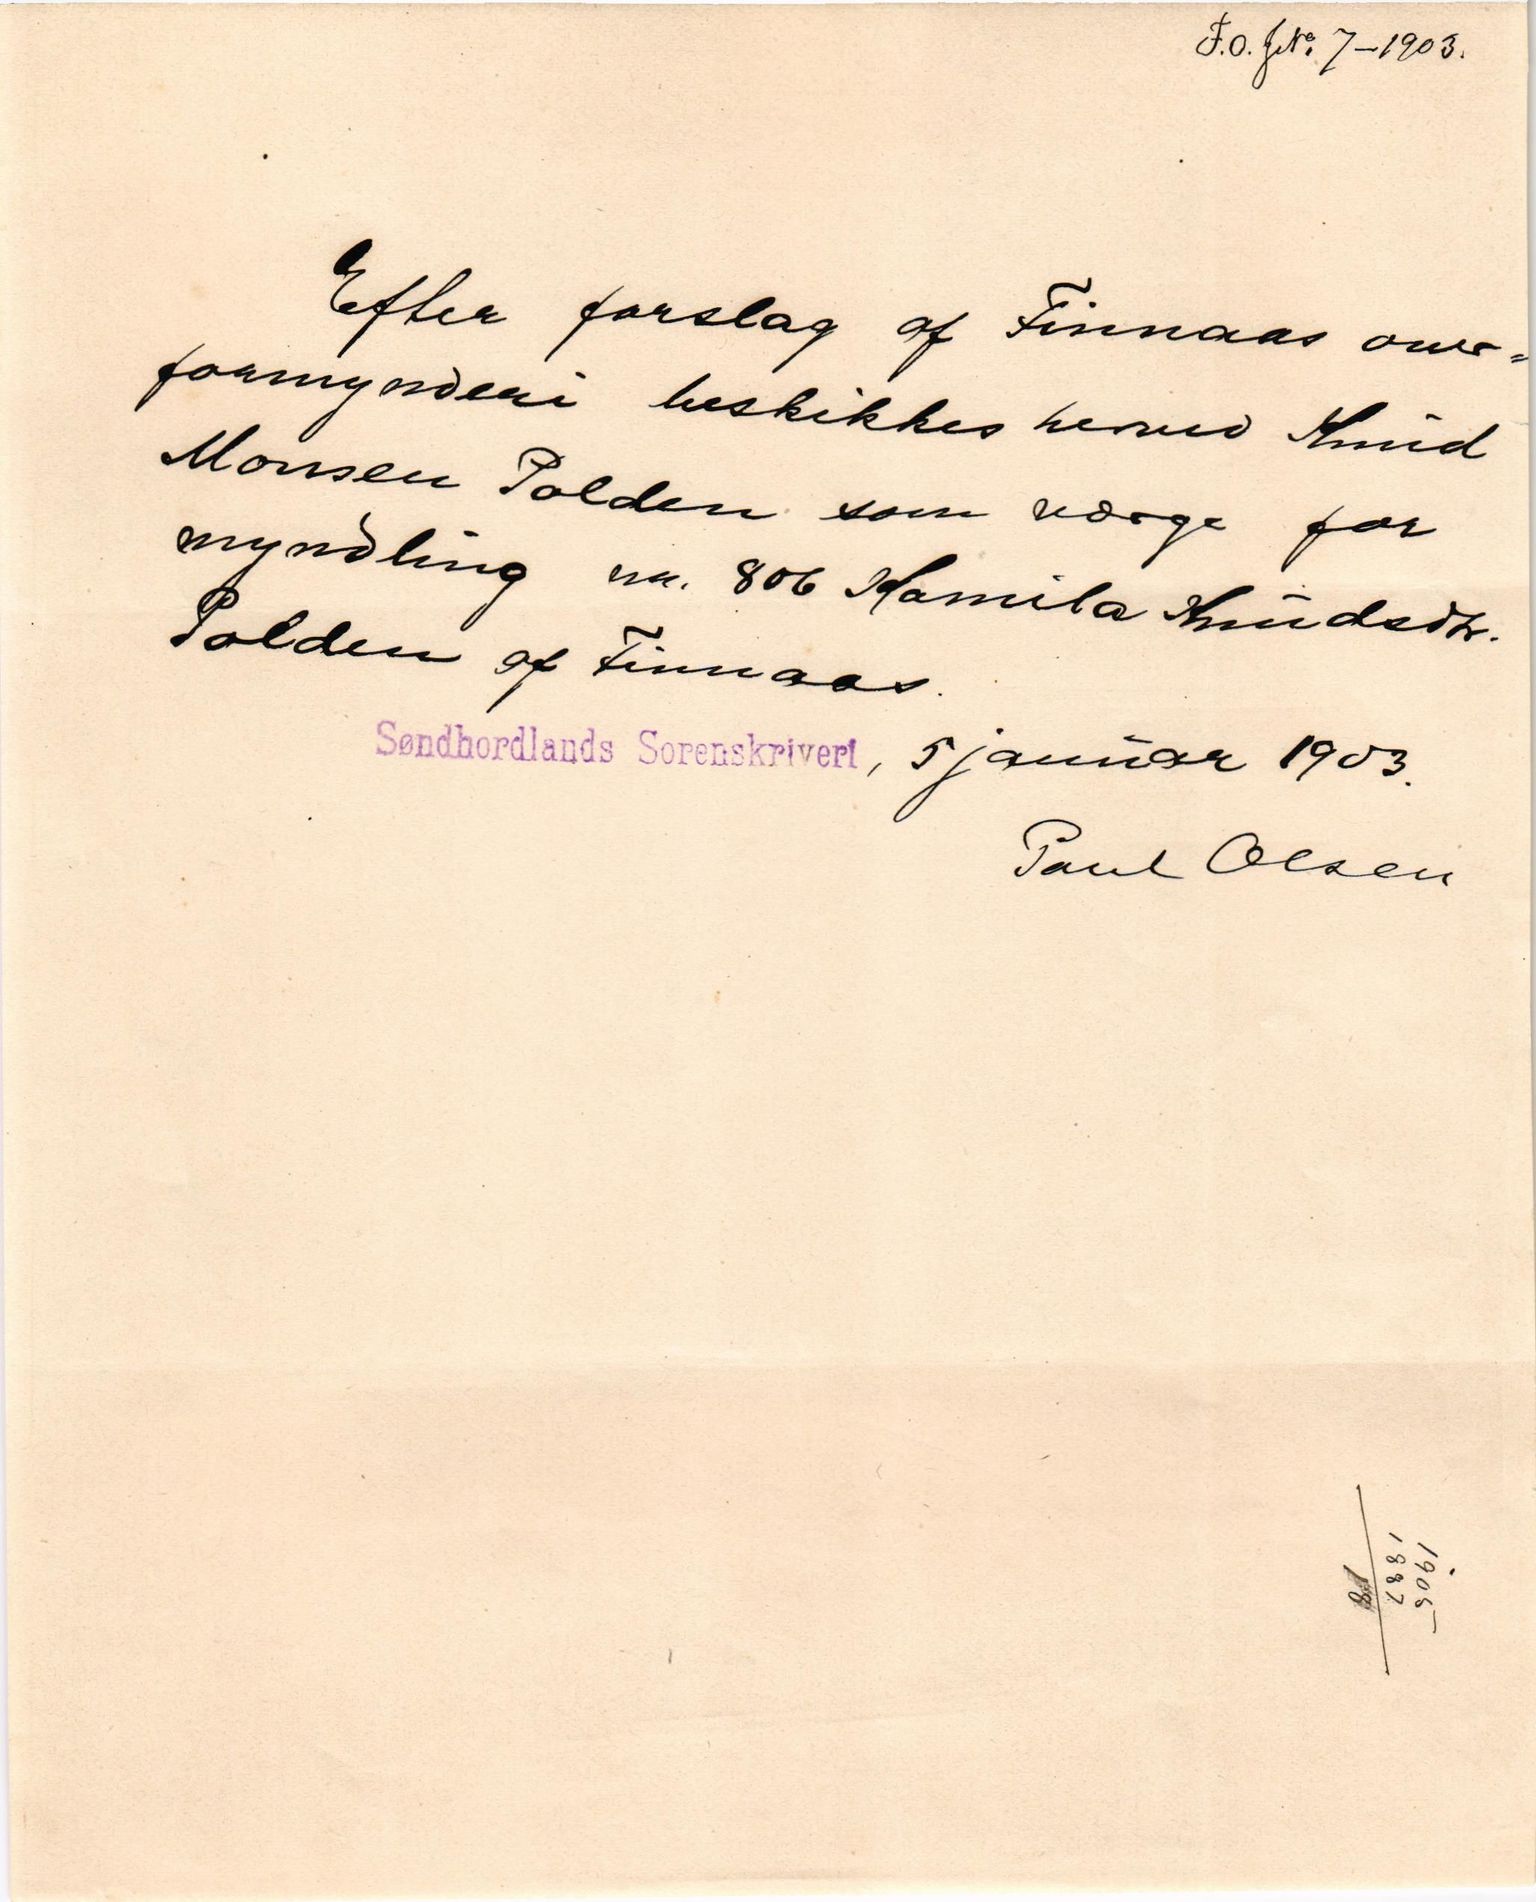 F.O. J№ 7–1903.
Efter forslag af Finnaas over=
formynderi beskikkes herved Knud
Monsen Polden som værge for
myndling nr. 806 Kamila Knudsdtr.
Polden af Finnaas.
Søndhordlands Sorenskriveri, 5 januar 1903.
Paul Olsen
1905
1887
18